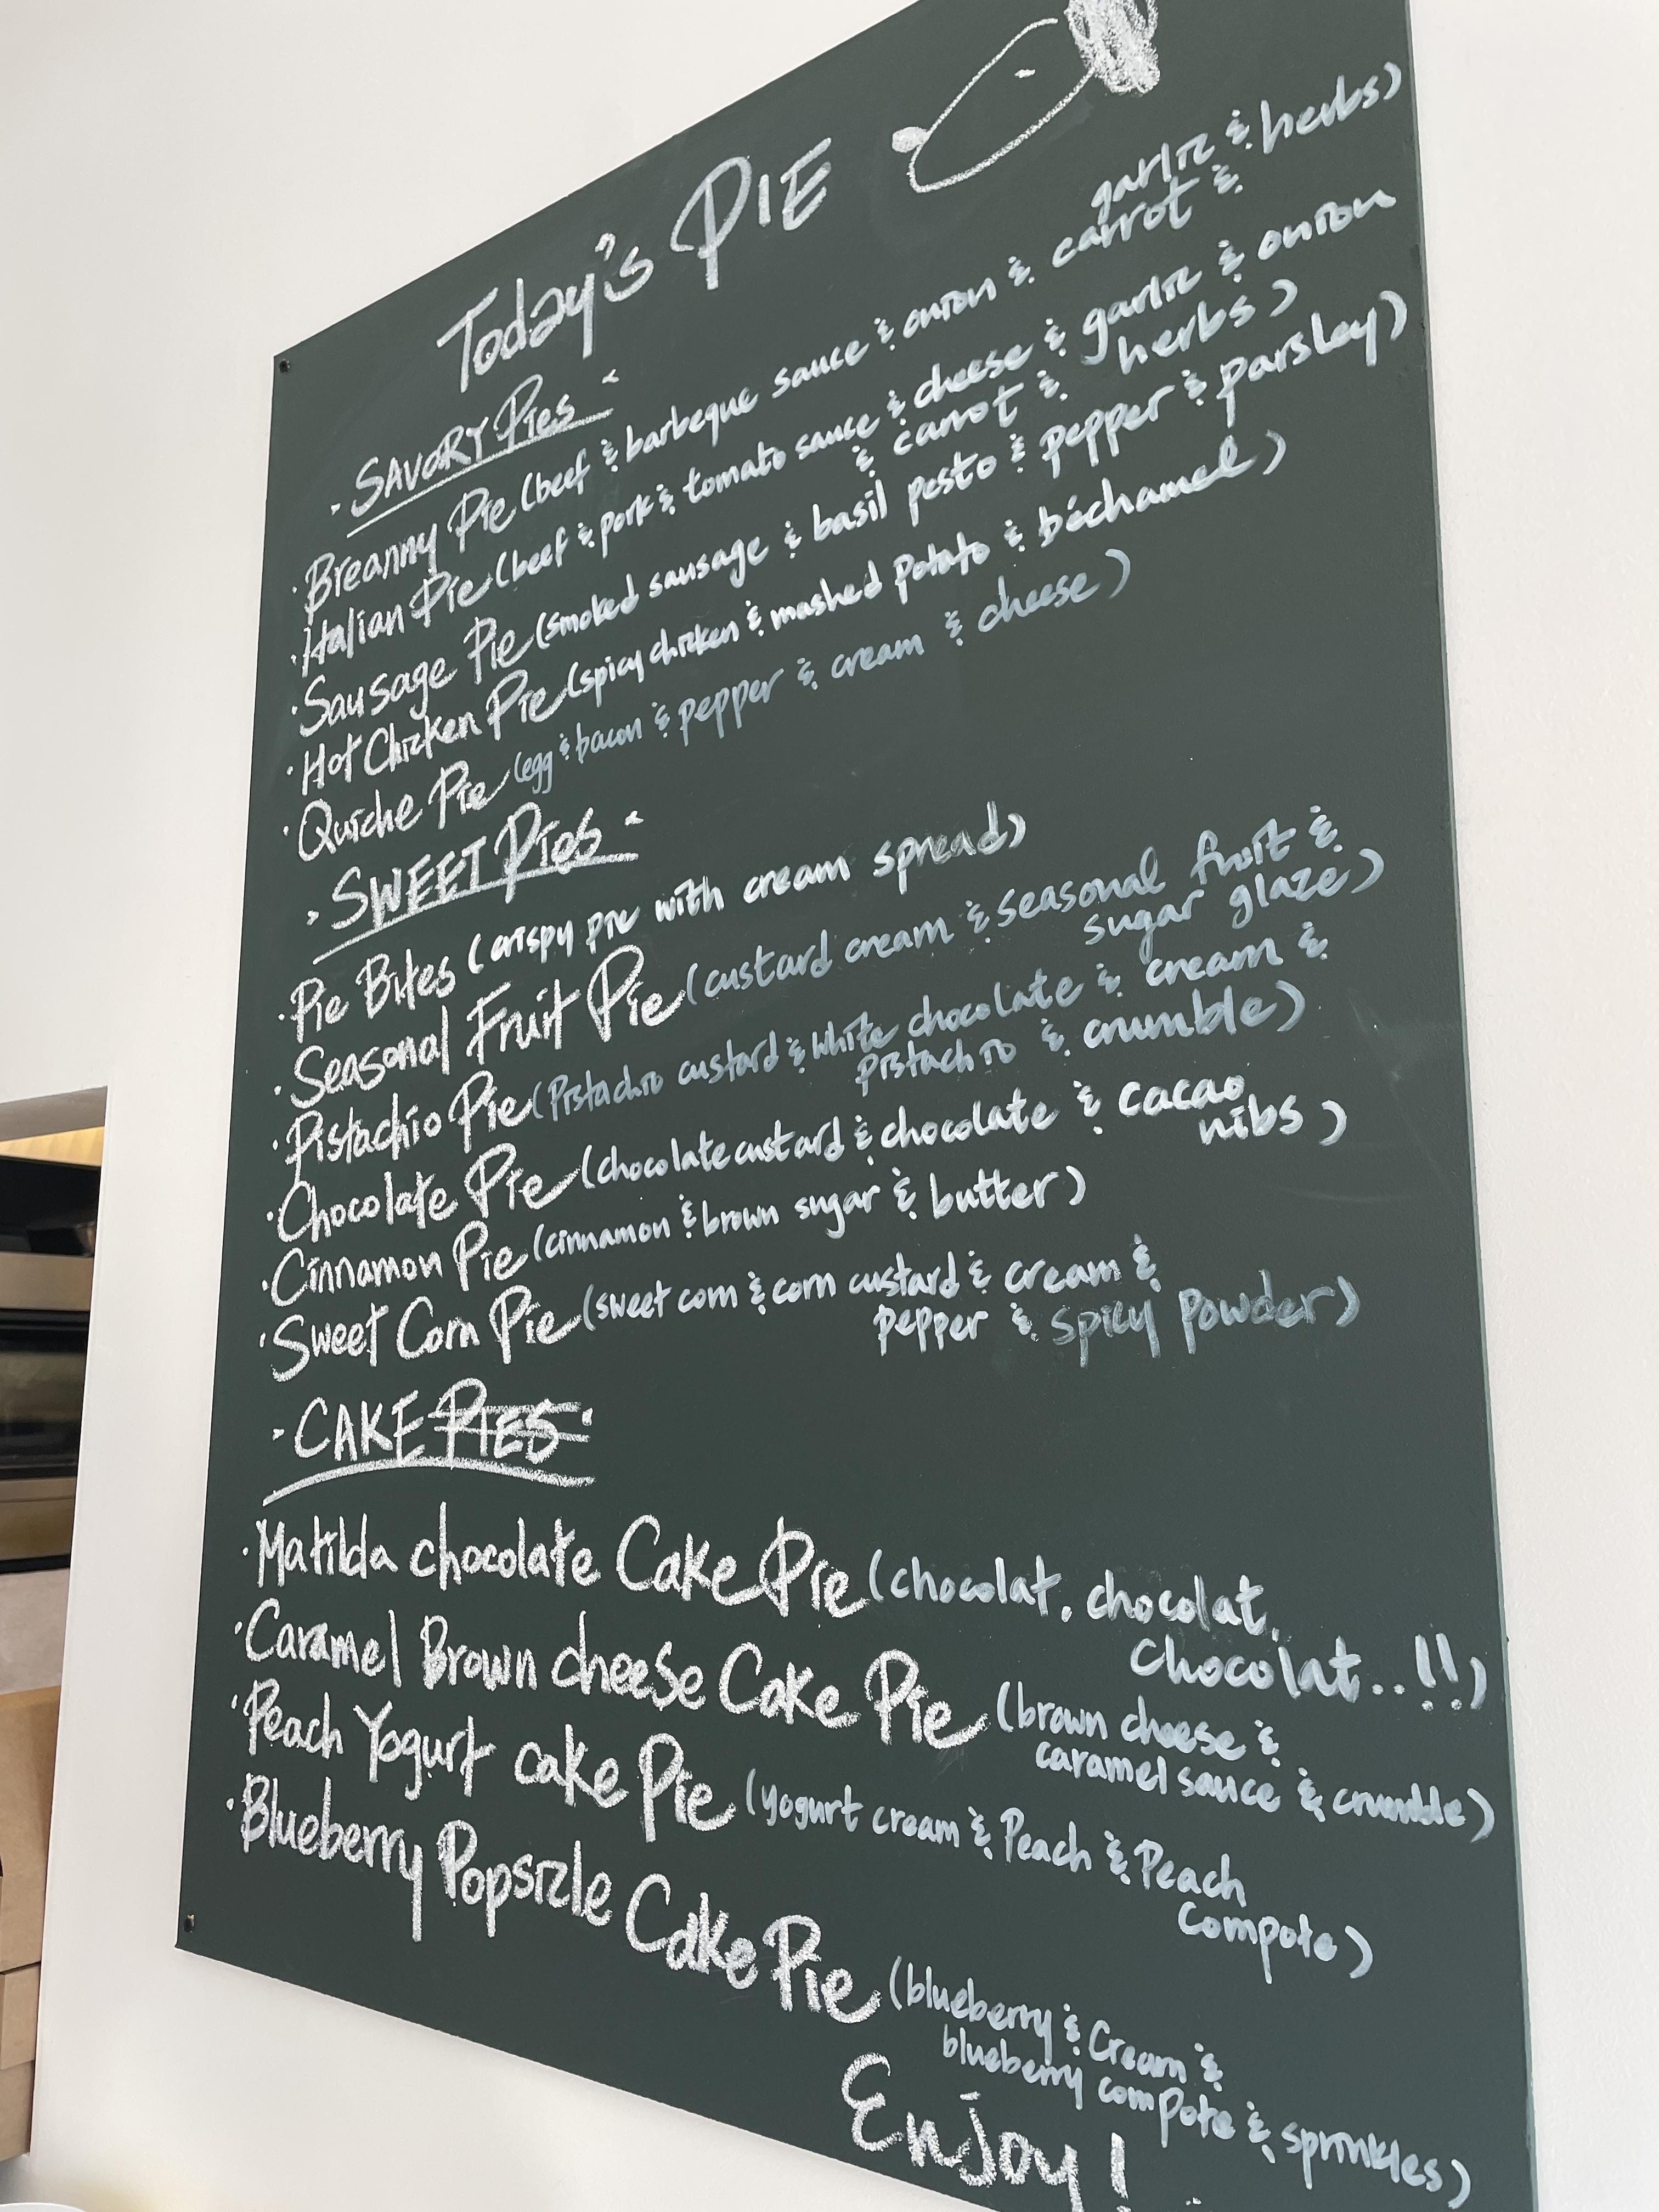 Today's PIE
· SAVORY Pies ·
· Breanny Pie (beef & barbeque sauce & onion & carrot &
garlic & herbs)
· Italian Pie (beef & pork & tomato sauce & cheese & garlic & onion
& carrot & herbs)
· Sausage Pie (smoked sausage & basil pesto & pepper & parsley)
· Hot Chicken Pie (spicy chicken & mashed potato & béchamel)
· Quiche Pie (egg & bacon & pepper & cream & cheese)
· SWEET Pies ·
· Pie Bites (crispy pie with cream spread)
· Seasonal Fruit Pie (custard cream & seasonal fruit &
sugar glaze)
· Pistachio Pie (Pistachio custard & white chocolate & cream &
pistachio & crumble)
· Chocolate Pie (chocolate custard & chocolate & cacao
nibs)
· Cinnamon Pie (cinnamon & brown sugar & butter)
· Sweet Corn Pie (sweet corn & corn custard & cream &
pepper & spicy powder)
· CAKE PIES ·
· Matilda chocolate Cake Pie (chocolat, chocolat,
chocolat..!!)
· Caramel Brown cheese Cake Pie (brown cheese &
caramel sauce & crumble)
· Peach Yogurt cake Pie (yogurt cream & Peach & Peach
compote)
· Blueberry Popsicle Cake Pie (blueberry & Cream &
blueberry compote & sprinkles)
Enjoy!